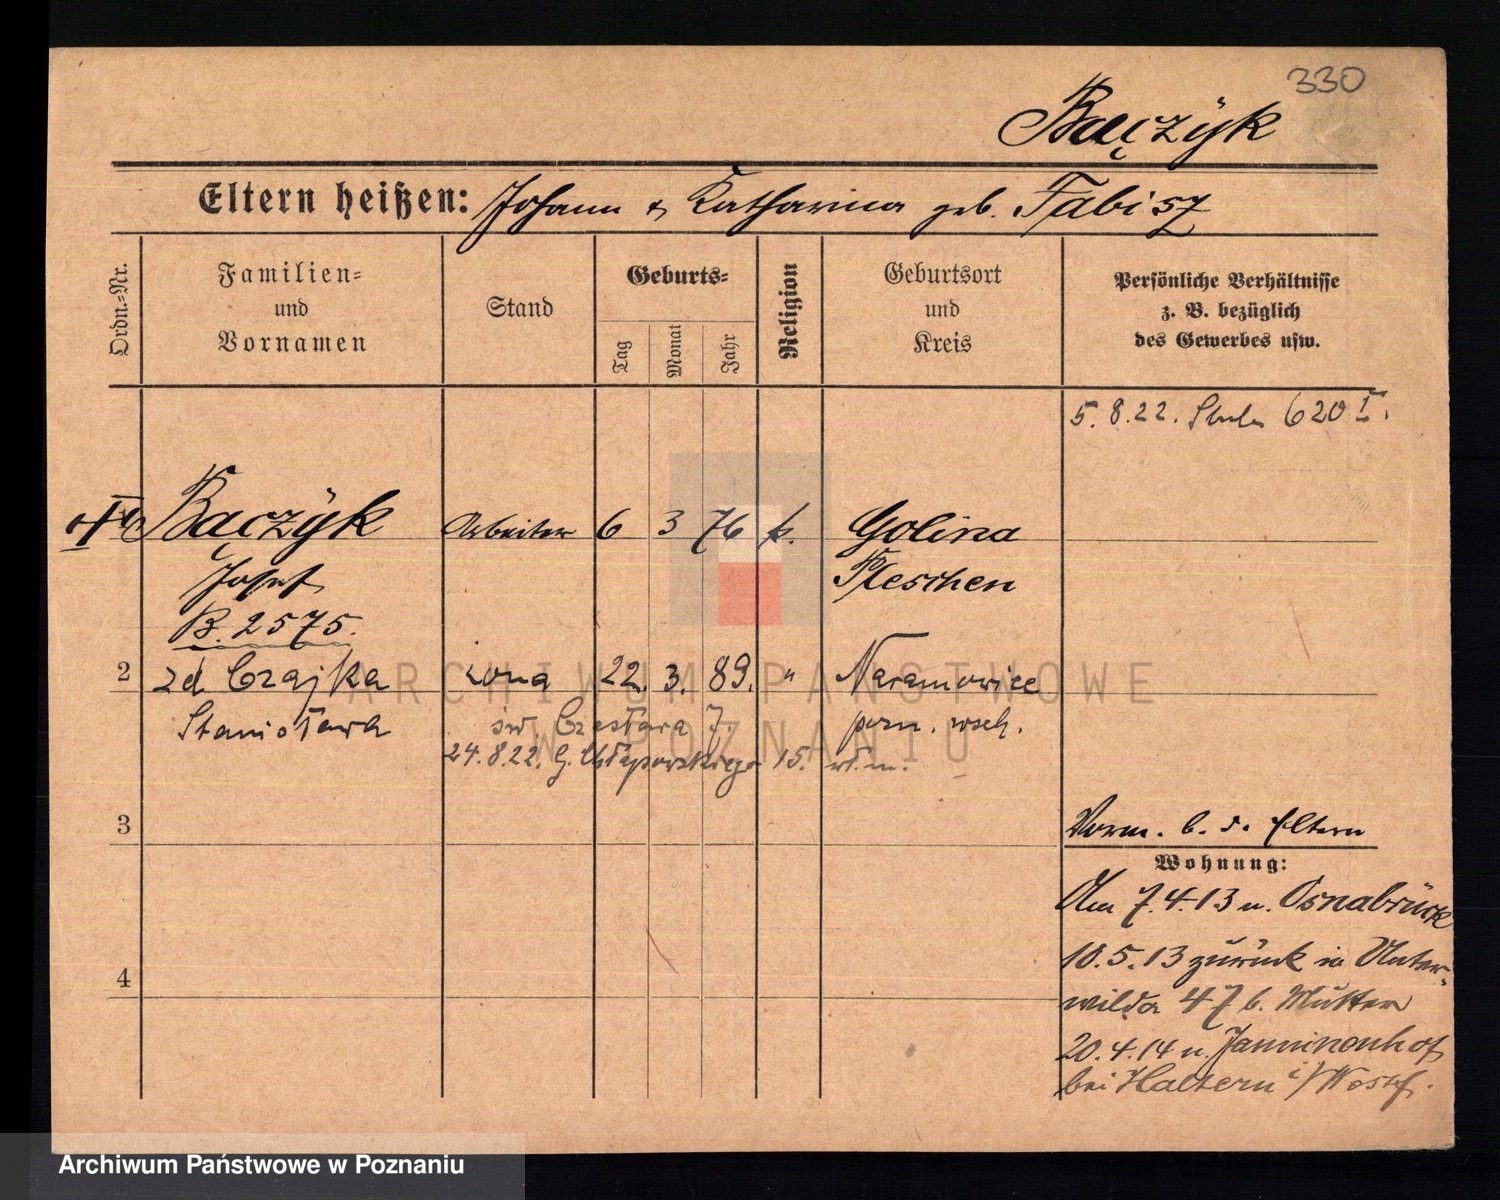 330
Bączyk
Eltern heißen: Johann & Katharina geb. Fabisz
Ordn.=Nr.
Familien=
und
Vornamen
Stand
Geburts=
Tag
Monat
Jahr
Religion
Geburtsort
und
Kreis
Persönliche Verhältnisse
z. B. bezüglich
des Gewerbes usw.
5. 8. 22. 620 I.
Bączyk Arbeiter 6 3 76 k. Golina
Josef Pleschen
B. 2575.
2 zd Czajka żona 22. 3. 89. " Naramowice
Stanisława św Czesława 7 pozn. wsch.
24. 8. 22. G. Chłapowskiego 15.
3
Vorm. b. d. Eltern
Wohnung:
Am 7.4.13 n. Osnabrück
18.5.13 zurück in Unter-
wilda 47 b. Mutter
4
20.4.14 n.
bei Haltern i/Westf.
ARCHIWUM PAŃSTWOWE
W POZNANIU
Archiwum Państwowe w Poznaniu